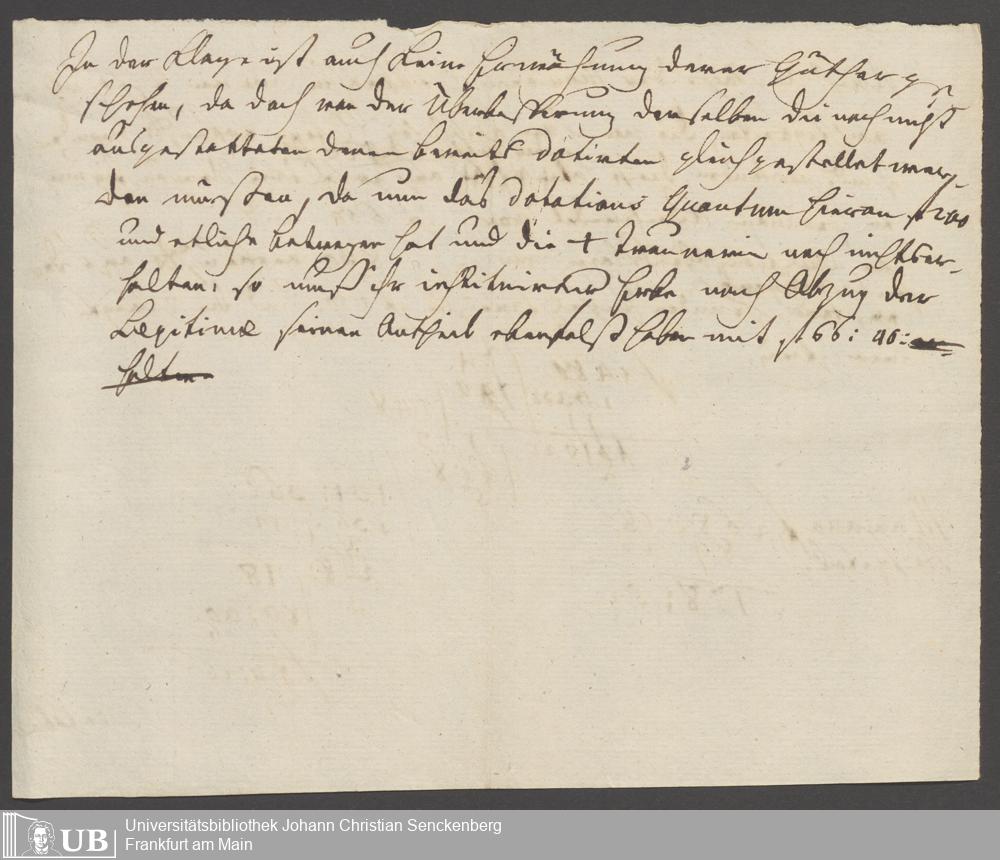 In der Klage ist auch keine Erwähnung derer Güther ge
schehen, da doch von der Überbesserung derselben die noch nicht
ausgestatteten denen bereits dotirten gleich gestellet wer,
den müssen, da nun das dotations Quantum hieran
und etliche betragen hat und die + noch nichts er,
halten: so muß ihr instituirter Erbe nach Abzug der
Legitimæ seinen Antheil ebenfalß haben mit f 66: 40:
halten
UB
Universitätsbibliothek Johann Christian Senckenberg
Frankfurt am Main